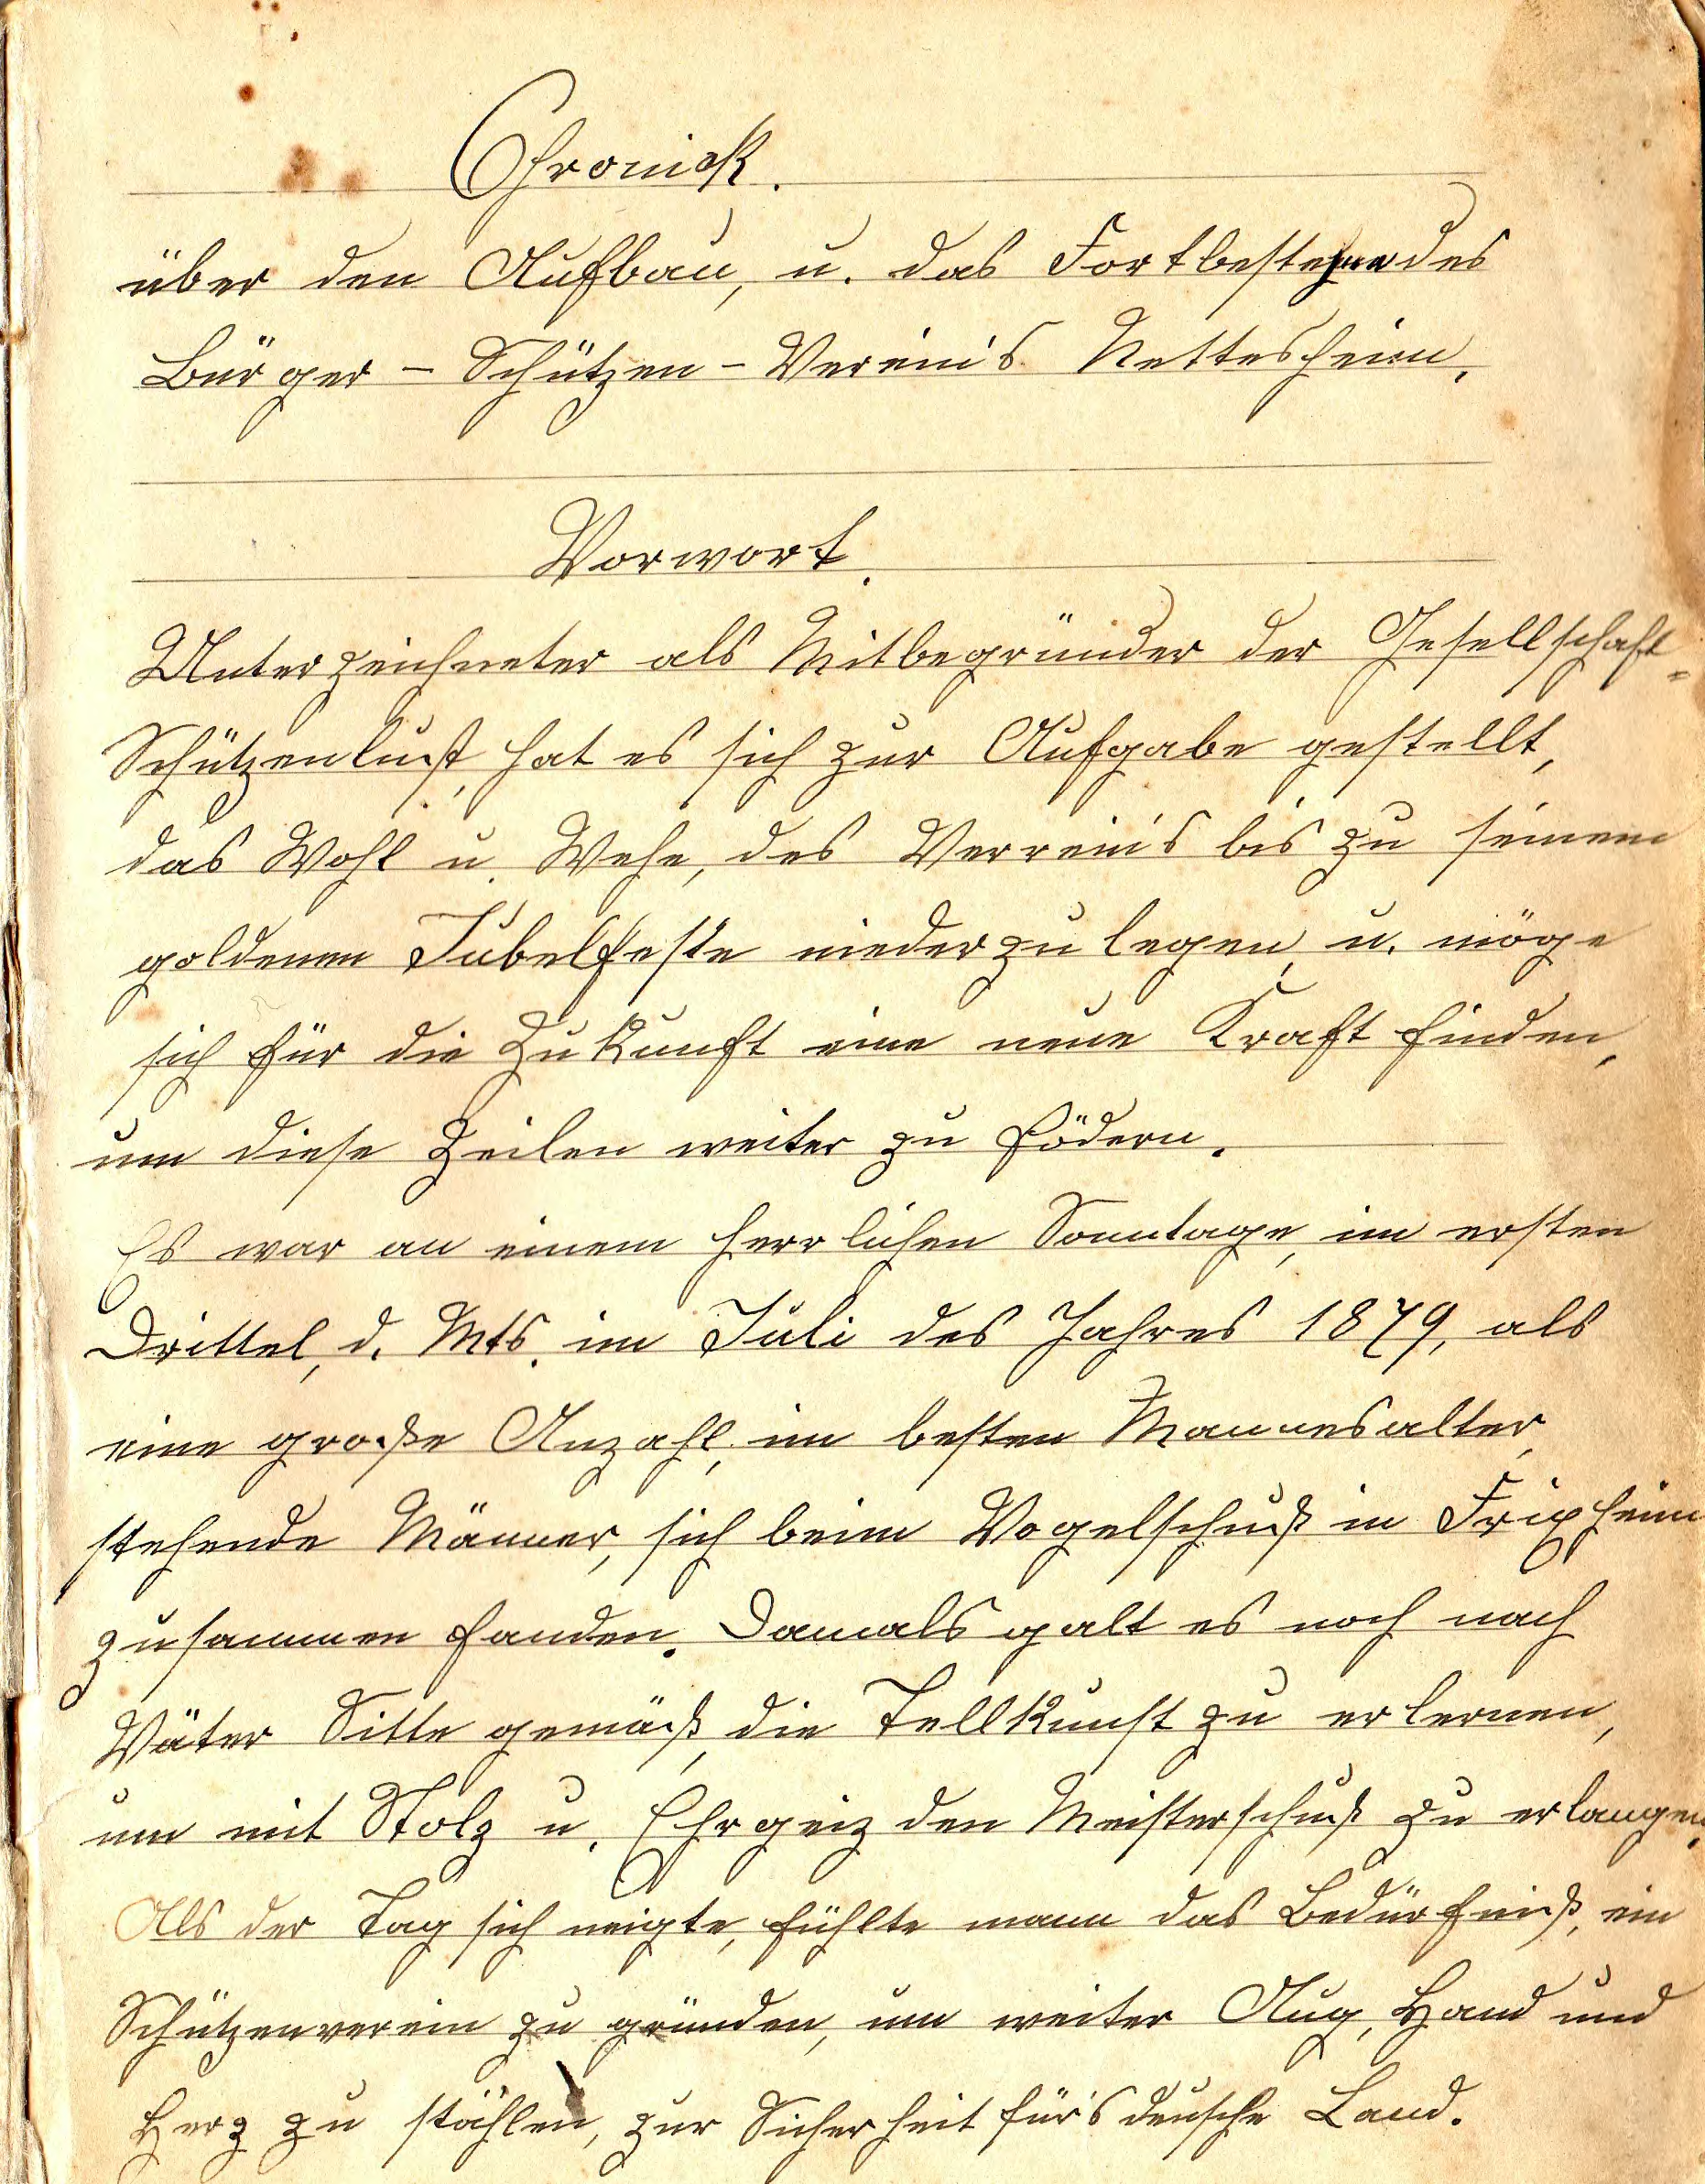 Chronick.
über den Aufbau, u. das Fortbestehen des
Bürger - Schützen - Verein's Nettesheim.
Vorwort.
Unterzeichneter als Mitbegründer der Gesellschaft=
Schützenlust, hat es sich zur Aufgabe gestellt,
das Wohl u. Wehe, des Verrein's bis zu seinem
goldenen Jubelfeste niederzulegen, u. möge
sich für die Zukunft eine neue Kraft finden,
um diese Zeilen weiter zu födern.
Es war an einem herrlichen Sonntage, im ersten
Drittel, d. Mts. im Juli des Jahres 1879, als
eine große Anzahl, im besten Mannesalter,
stehende Männer, sich beim Vogelschuß in Frixheim
zusammen fanden. Damals galt es noch nach
Väter Sitte gemäß, die Tellkunst zu erlernen,
um mit Stolz u. Ehrgeiz den Meisterschuß zu erlangen.
Als der Tag sich neigte, fühlte mann das Bedürfniß, ein
Schützenverein zu gründen, um weiter Aug, Hand und
Herz zu stählen, zur Sicherheit für's deusche Land.